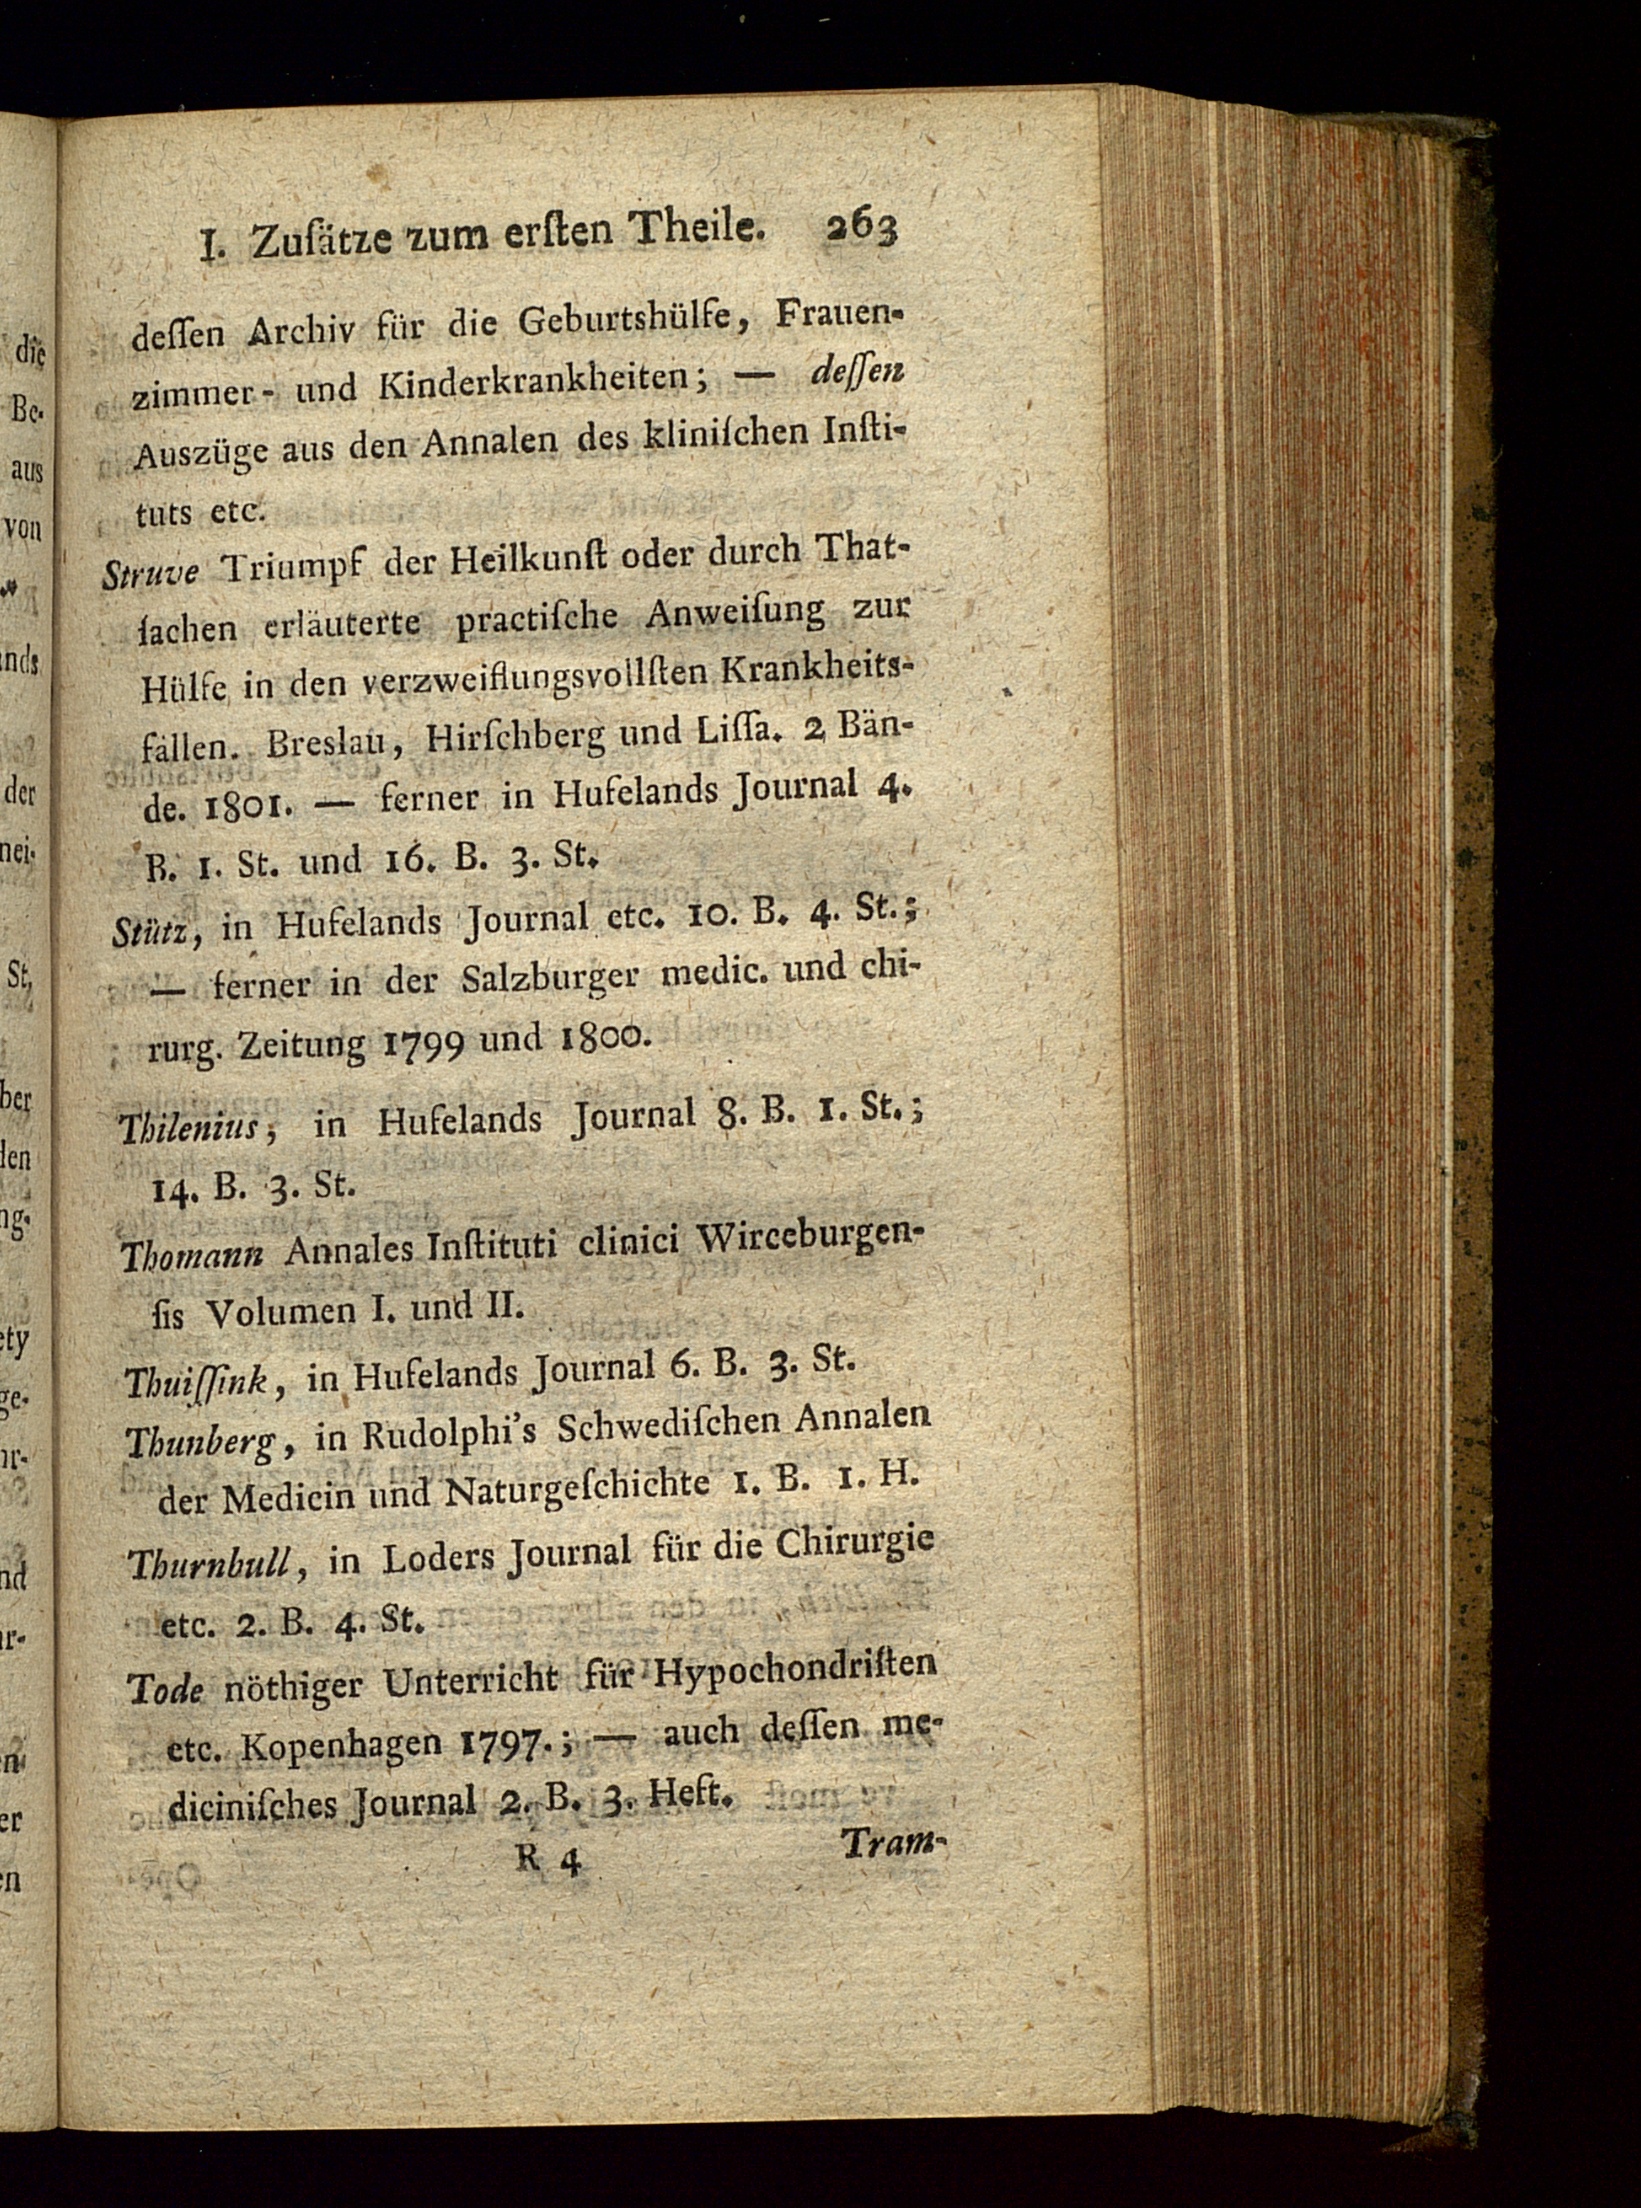 I. Zuſätze zum erſten Theile. 263
deſſen Archiv für die Geburtshülfe, Frauen-
zimmer- und Kinderkrankheiten; — deſſen
Auszüge aus den Annalen des kliniſchen Inſti-
tuts etc.
Struve Triumpf der Heilkunſt oder durch That-
ſachen erläuterte practiſche Anweiſung zur
Hülfe in den verzweiflungsvollſten Krankheits-
fällen. Breslau, Hirſchberg und Liſſa. 2 Bän-
de. 1801. — ferner in Hufelands Journal 4.
B. 1. St. und 16. B. 3. St.
Stütz, in Hufelands Journal etc. 10. B. 4. St.;
— ferner in der Salzburger medic. und chi-
rurg. Zeitung 1799 und 1800.
Thilenius, in Hufelands Journal 8. B. 1. St.;
14. B. 3. St.
Thomann Annales Inſtituti clinici Wirceburgen-
ſis Volumen I. und II.
Thuiſſink, in Hufelands Journal 6. B. 3. St.
Thunberg, in Rudolphi's Schwediſchen Annalen
der Medicin und Naturgeſchichte 1. B. 1. H.
Thurnbull, in Loders Journal für die Chirurgie
etc. 2. B. 4. St.
Tode nöthiger Unterricht für Hypochondriſten
etc. Kopenhagen 1797.; — auch deſſen me-
diciniſches Journal 2. B. 3. Heft.
R 4 Tram-